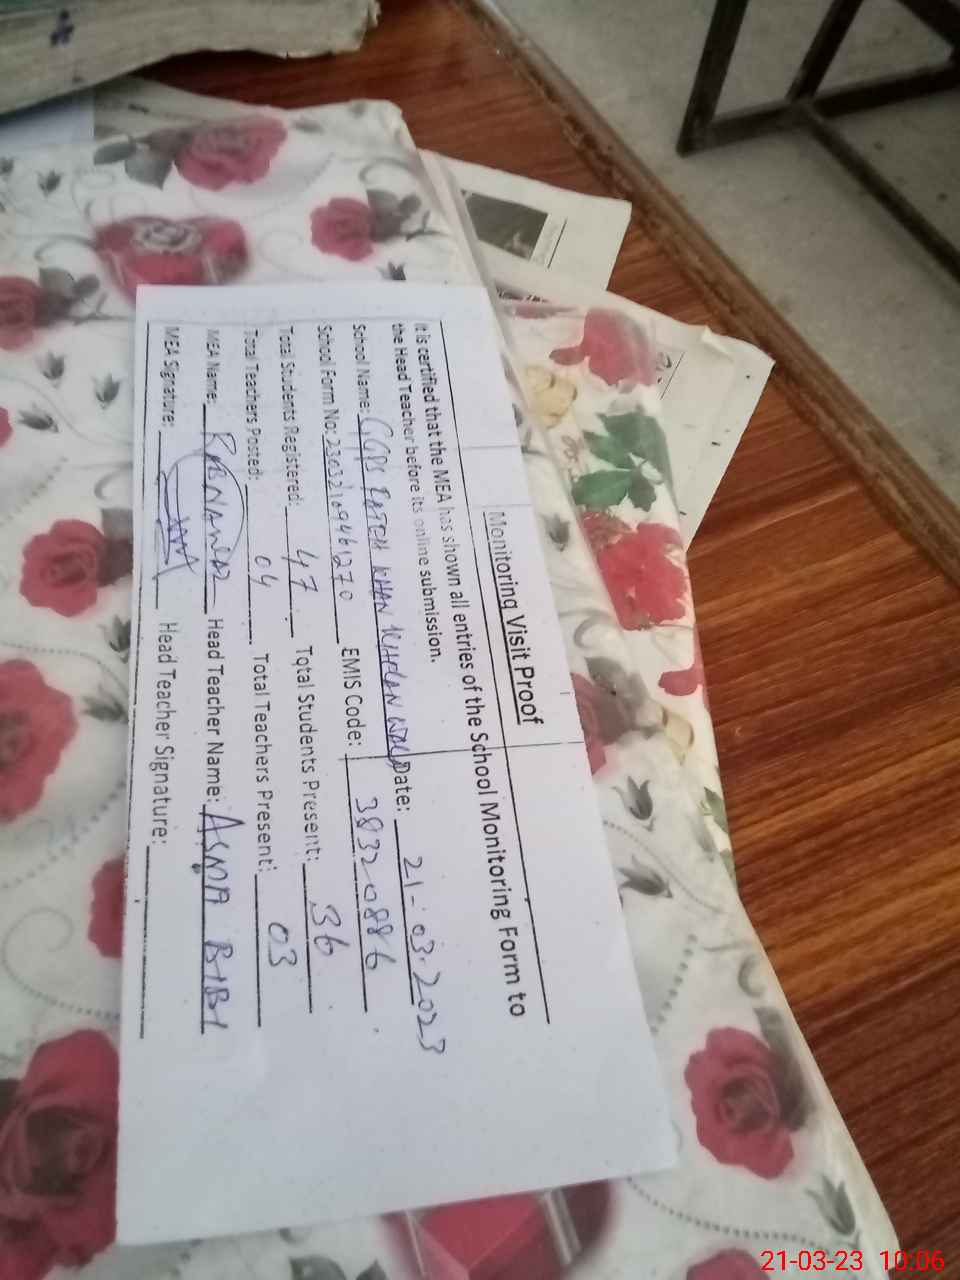 Monitoring Visit Proof
It is certified that the MEA has shown all entries of the School Monitoring Form to
the Head Teacher before its online submission.
School Name: GGPS FATEH KHAN Date: 21-03-2023
School Form No: 23032169461270 EMIS Code: 38320886
Total Students Registered: 47 Total Students Present: 36
Total Teachers Posted: 04 Total Teachers Present: 03
MEA Name: Head Teacher Name: ASMA BIBI
MEA Signature: Head Teacher Signature:
21-03-23 10:06